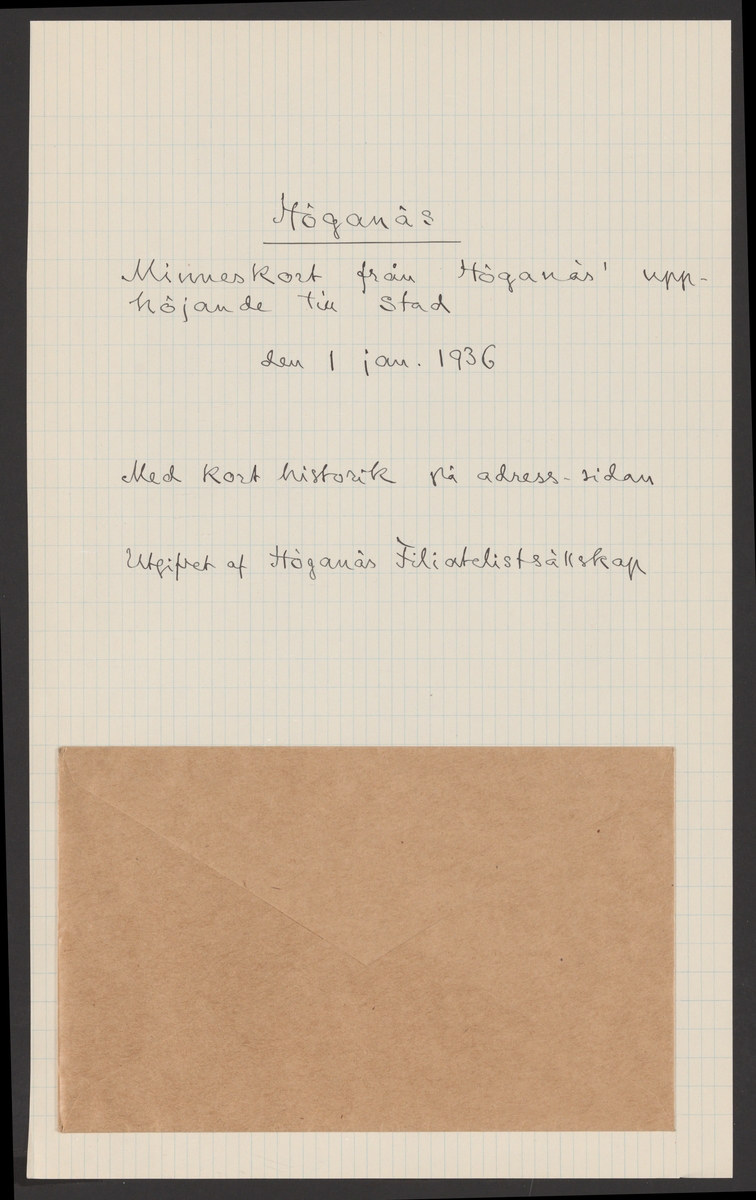 Höganäs
Minneskort från Höganäs' upp-
höjande till stad
den 1 jan. 1936
Med kort historik på adress-sidan
Utgifvet af Höganäs Filiatelistsällskap